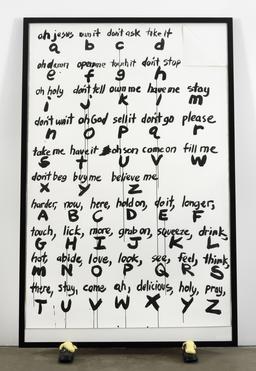 oh jesus own it don't ask take it
a b c d
oh damn open me touch it don't stop
e f g h
oh holy don't tell own me have me stay
i j k l m
don't wait oh God sell it don't go please
n o p q r
take me have it oh son come on fill me
s t u v w
don't beg buy me believe me
x y z
harder, now, here, hold on, do it, longer,
A B C D E F
touch, lick, more, grab on, squeeze, drink,
G H I J K L
hot, abide, love, look, see, feel, think,
M N O P Q R S
there, stay, come, ah, delicious, holy, pray,
T U V W X Y Z